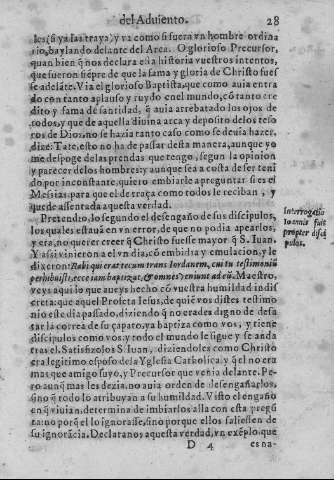 del Aduiento. 28
les (si ya las traya) y va como si fuera vn hombre ordina
rio, baylando delante del Arca. O glorioso Precursor,
quan bien q̃ nos declara esta historia vuestros intentos,
que fueron siẽpre de que la fama y gloria de Christo fues
se adelãte. Via el glorioso Baptista, que como auia entra
do con tanto aplauso y ruydo en el mundo, cõ tanto cre
dito y fama de santidad, q̃ auia arrebatado los ojos de
todos, y que de aquella diuina arca y deposito de los teso
ros de Dios, no se hazia tanto caso como se deuia hazer,
dize: Tate, esto no ha de passar desta manera, aunque yo
me despoge de las prendas que tengo, segun la opinion
y parecer de los hombres: y aunque sea a costa de ser teni
do por inconstante, quiero embiarle a preguntar si es el
Messias, para que el de traça como todos le reciban, y
quede assentada aquesta verdad.
Pretendio, lo segundo el desengaño de sus discipulos,
los quales estauã en vn error, de que no podia apearlos,
y era, no querer creer q̃ Christo fuesse mayor q̃ S. Iuan.
Y assi vinieron a el vn dia, cõ embidia y emulacion, y le
dixeron: Rabi qui erat tecum trans Iordanem, cui tu testimoniũ
perhibuisti, ecce iam baptizat, & omnes veniunt ad eũ. Maestro,
veys aqui lo que aueys hecho cõ vuestra humildad indis
creta: que aquel Profeta Iesus, de quiẽ vos distes testimo
nio este dia passado, diziendo q̃ no erades digno de desa
tar la correa de su çapato, ya baptiza como vos, y tiene
discipulos como vos, y todo el mundo le sigue y se anda
tras el. Satisfizolos S. Iuan, diziendoles como Christo
era legitimo esposo de la Yglesia Catholica, y q̃ el no era
mas que amigo suyo, y Precursor que venia delante. Pe-
ro aunq̃ mas les dezia, no auia orden de desengañarlos,
sino q̃ todo lo atribuyan a su humildad. Visto el engaño
en q̃ viuian, determina de imbiarlos alla con esta pregũ
ta: no porq̃ el lo ignorasse, sino porque ellos saliessen de
su ignorãcia. Declaranos aquesta verdad, vn exẽplo, que
D 4 es na-
Interrogatio
Ioannis fuit
propter disci
pulos.